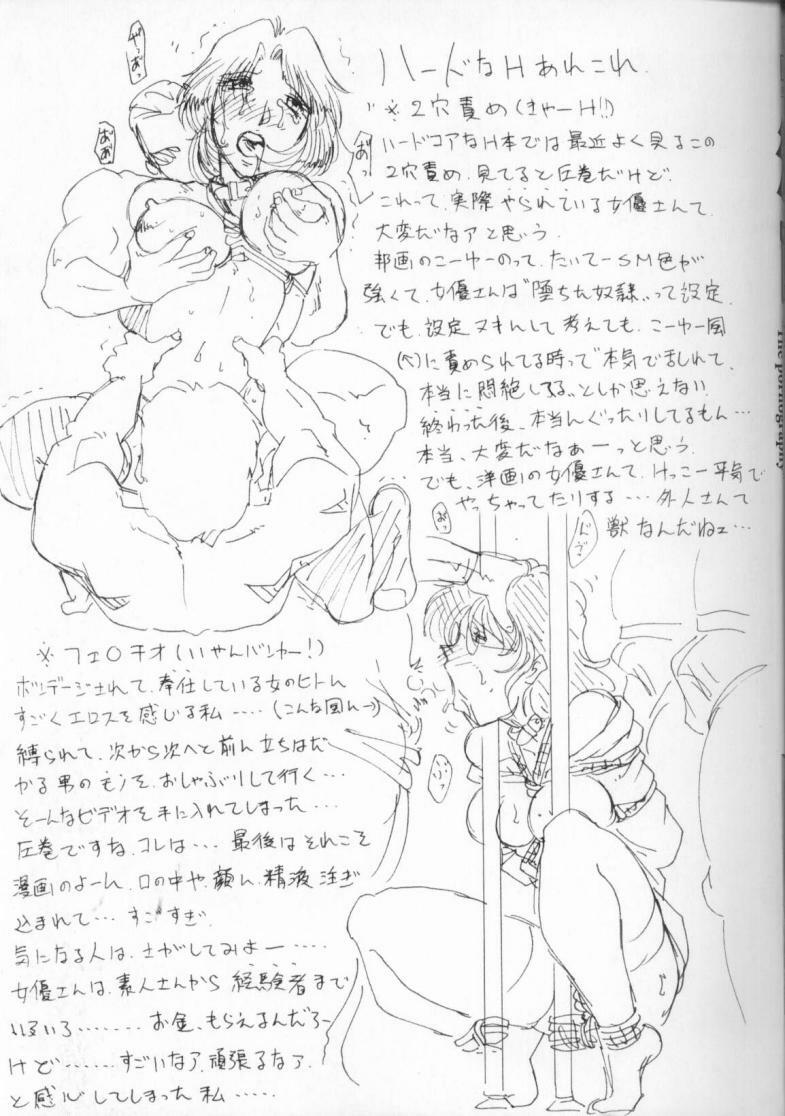 ハードなHあれこれ
※2穴責め(きゃーH!!)
ハードコアなH本では最近よく見るこの
2穴責め、見てると圧巻だけど、
これって、実際やられている女優さんて、
大変だなアと思う
邦画のこーゆーのって、たいてーSM色が
強くて、女優さんは“堕ちた奴隷、、って設定、
でも、設定ヌキにして考えても、こーゆー風
に責められてる時って“本気で乱れて、
本当に悶絶してる〟としか思えない
終わった後、本当にぐったりしてるもん…
本当、大変だなぁーっと思う
でも、洋画の女優さんて、けっこー平気で
やっちゃってたりする…外人さんて
獣なんだねェ…
※フェ○チオ(いやんバカー!)
ボンデージされて、奉仕している女のヒトに
すごくエロスを感じる私‥‥(こんな風に→)
縛られて、次から次へと前に立ちはだ
かる男のモノを、おしゃぶりして行く…
そーんなビデオを手に入れてしまった…
圧巻ですね、コレは… 最後はそれこそ
漫画のよーに、口の中や、顔に、精液注ぎ
込まれて… すごすぎ、
気になる人は、さがしてみよー‥‥
女優さんは、素人さんから経験者まで
いろいろ‥‥‥お金、もらえるんだろー
けど‥‥‥すごいなア、頑張るなァ、
と感心してしまった私‥‥‥
The pornography